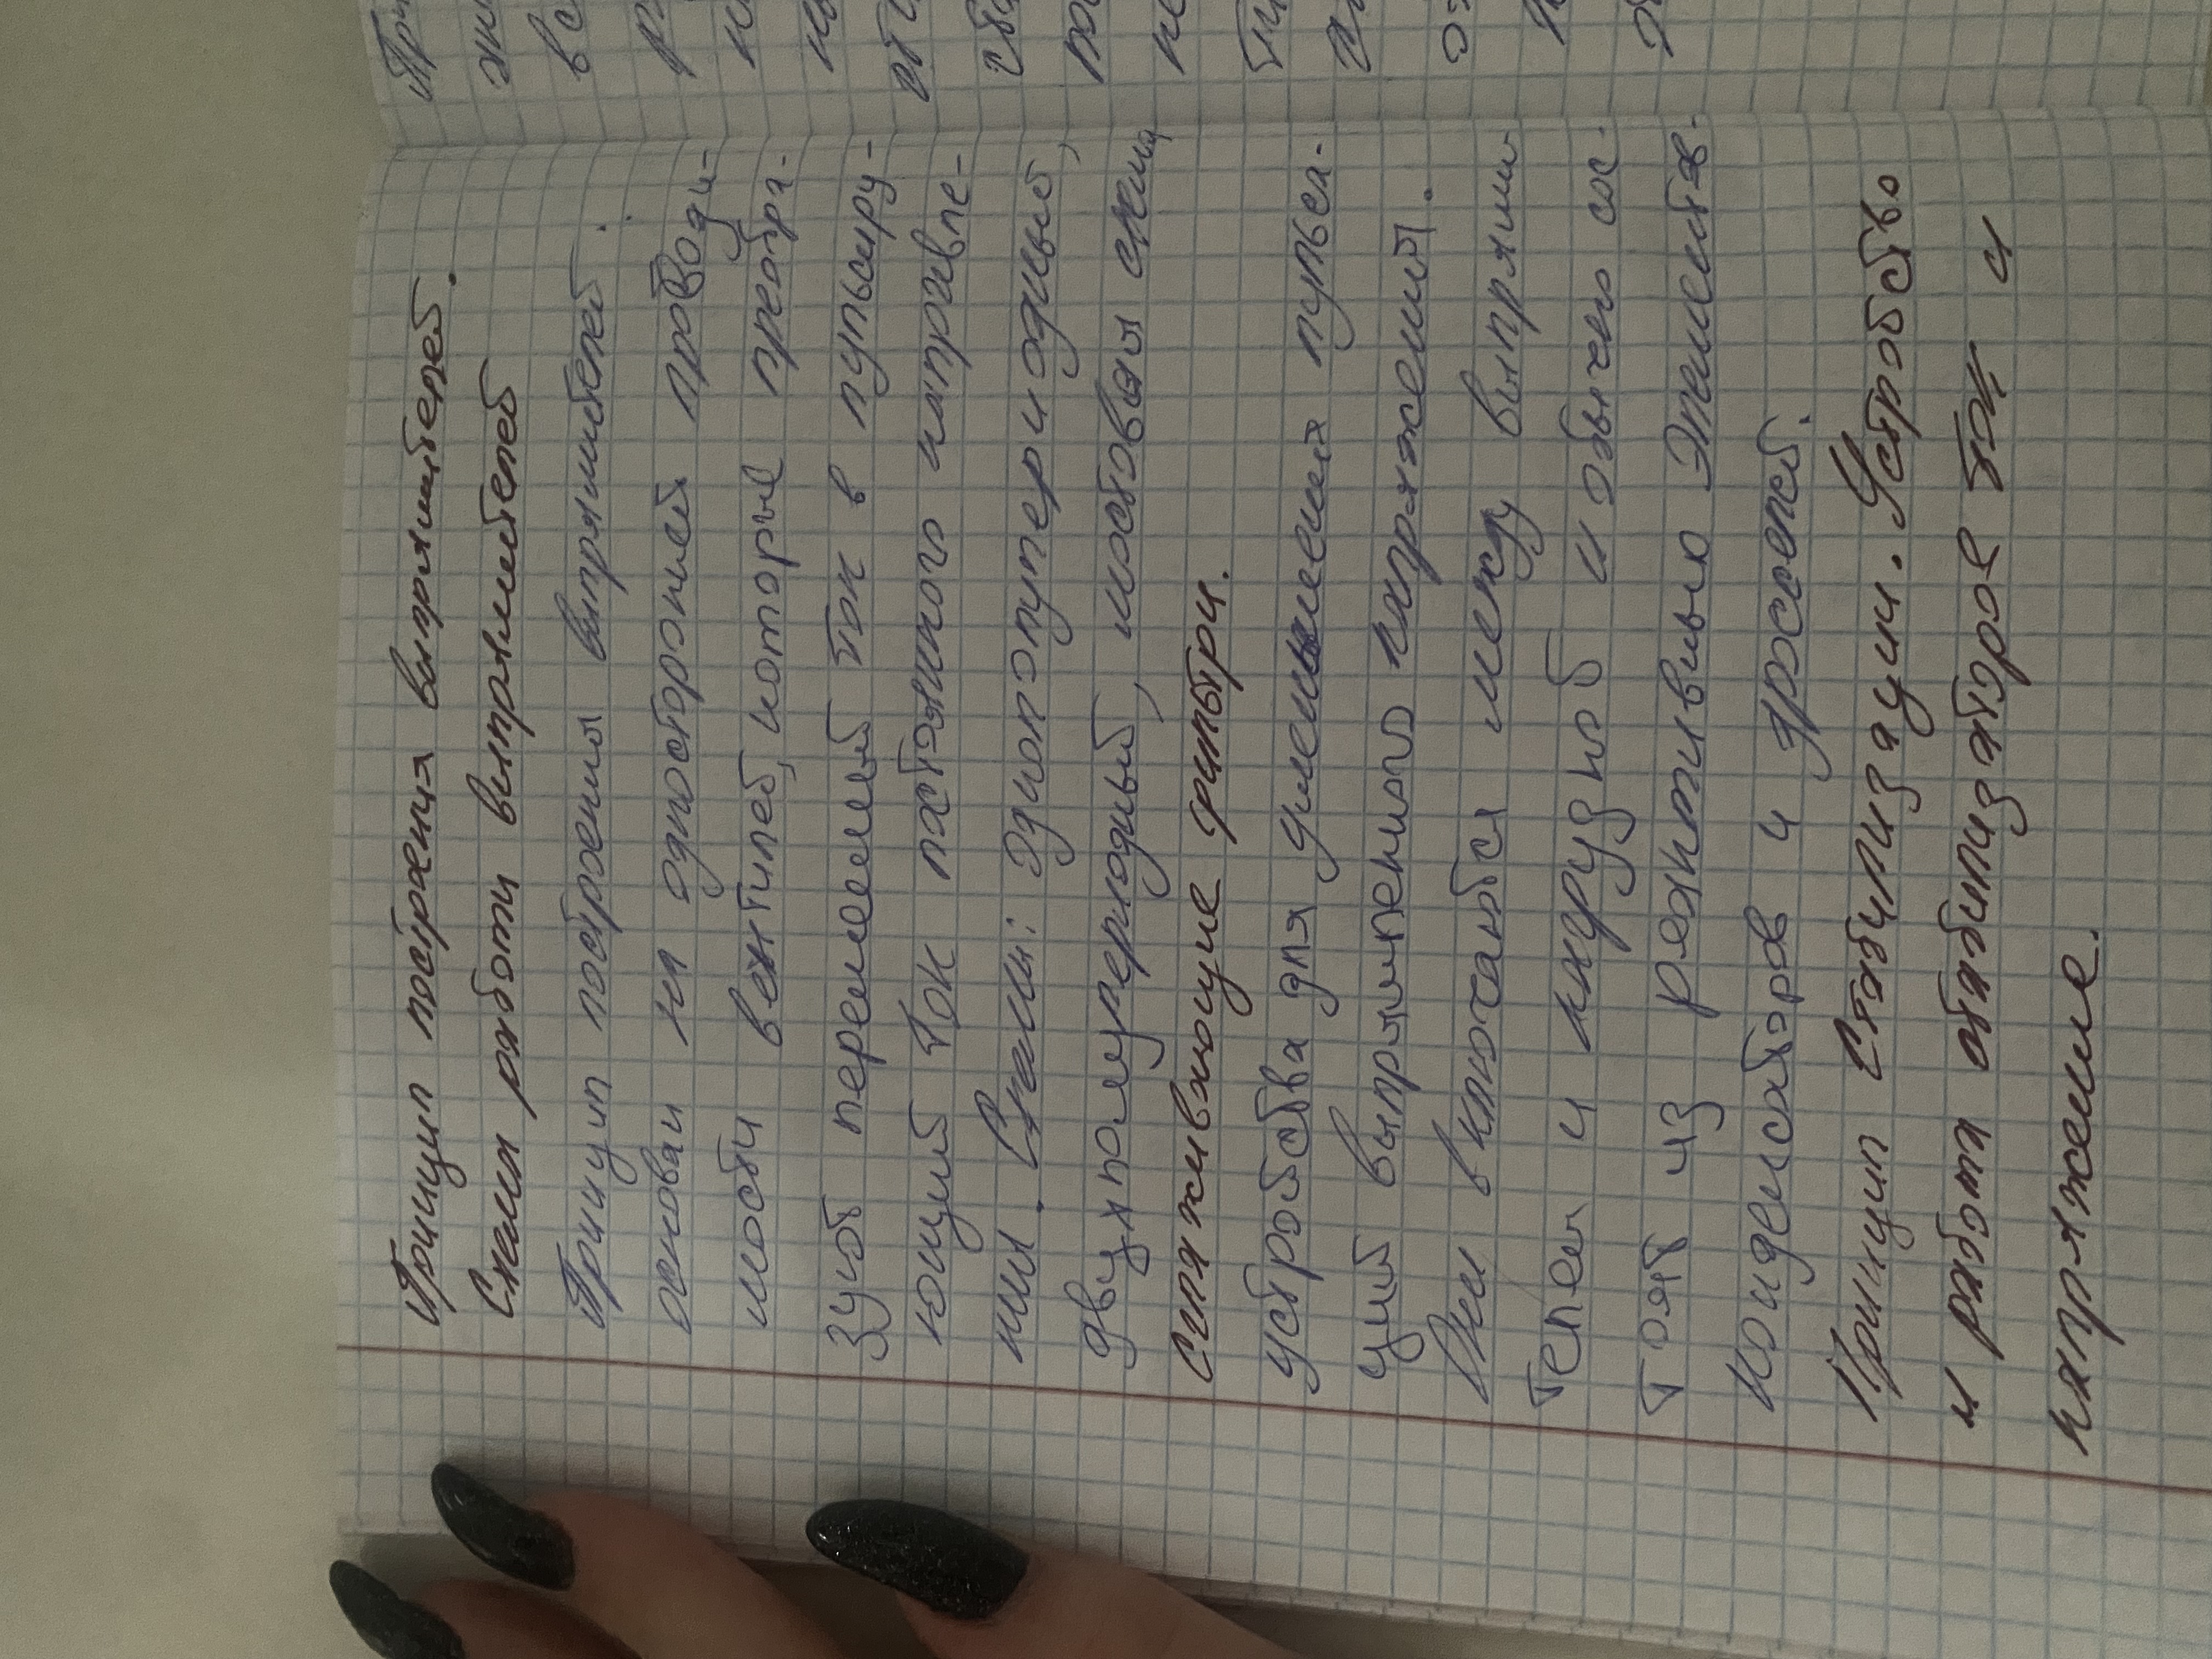 Принцип построения выпрямителей.
Схема работы выпрямителей
Принцип построены выпрямителей.
основан на односторонней проводи-
мости вентилей, которые преобра-
зуют переменный ток в пульсиру-
ющий ток постоянного направле-
ния. Схемы: однополупериодный,
двухполупериодный, мостовая схема
сглаживающие фильтри.
устройства для уменьшения пульса-
ций выпрямленного напряжений.
Они включаются между выпрями-
телем и нагрузкой и обычно сос-
тоят из реактивных элементов-
конденсаторов и дросселей.
Принцип стабилизации. Устройство
и работа стабилизаторов ток и
напряжение.
При
в с